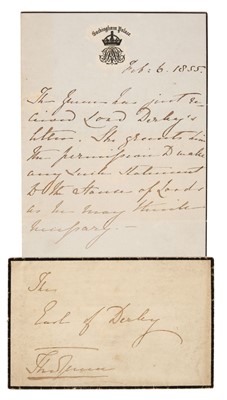 Buckingham Palace
Feb: 6. 1855.
The Queen has just re-
ceived Lord Derby's
letter. She grants him
the permission to make
any such statement
to the House of Lords
as he may think
necessary. —
The
Earl of Derby
The Queen